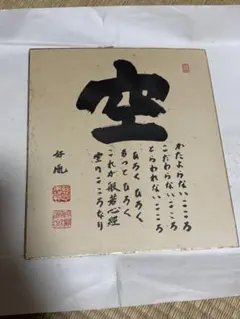 空
かたよらないこころ
こだわらないこころ
とらわれないこころ
ひろく ひろく
もっと ひろく
これが般若心経
空のこころなり